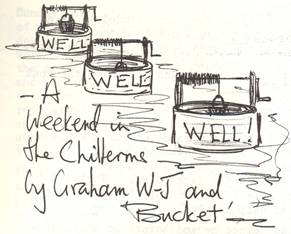 WELL
WELL
WELL!
- A
Weekend in
the Chilterns
by Graham W-J and
'Bucket' -